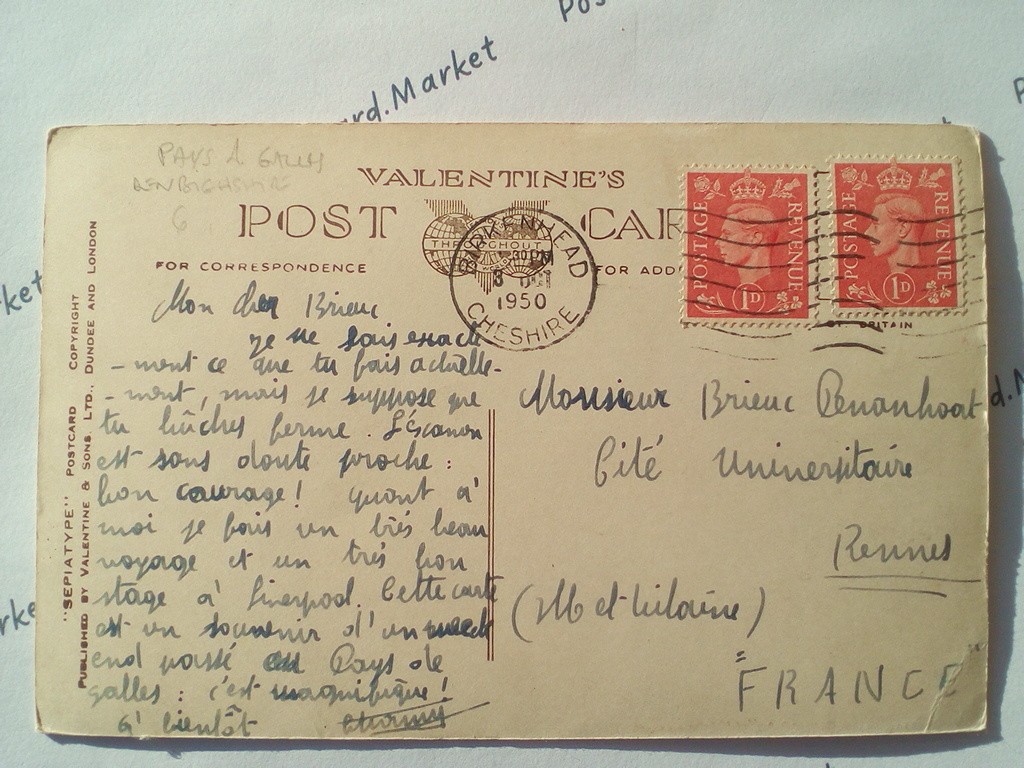 Pos
rd.Market
PAYS d GALLES
DENBIGHSHIRE
6
VALENTINE'S
POST CAR
THROUGHOUT
WORLD
FOR CORRESPONDENCE
FOR ADD
BIRKENHEAD
30 PM
8
1950
CHESHIRE
POSTAGE REVENUE
1D
POSTAGE REVENUE
1D
BRITAIN
ket
rke
d.M
"SEPIATYPE" POSTCARD COPYRIGHT
PUBLISHED BY VALENTINE & SONS. LTD., DUNDEE AND LONDON
Mon cher Brieuc
je ne sais exacte
-ment ce que tu fais actuelle-
-ment, mais je suppose que
tu bûches ferme. L'éxamen
est sans doute proche:
bon courage! quant à
moi je fais un très beau
voyage et un très bon
stage à Liverpool. Cette carte
est un souvenir d'un week
end passé au Pays de
galles: c'est magnifique!
à bientôt
Monsieur Brieuc
Cité Universitaire
Rennes
(Ille et Vilaine)
FRANCE